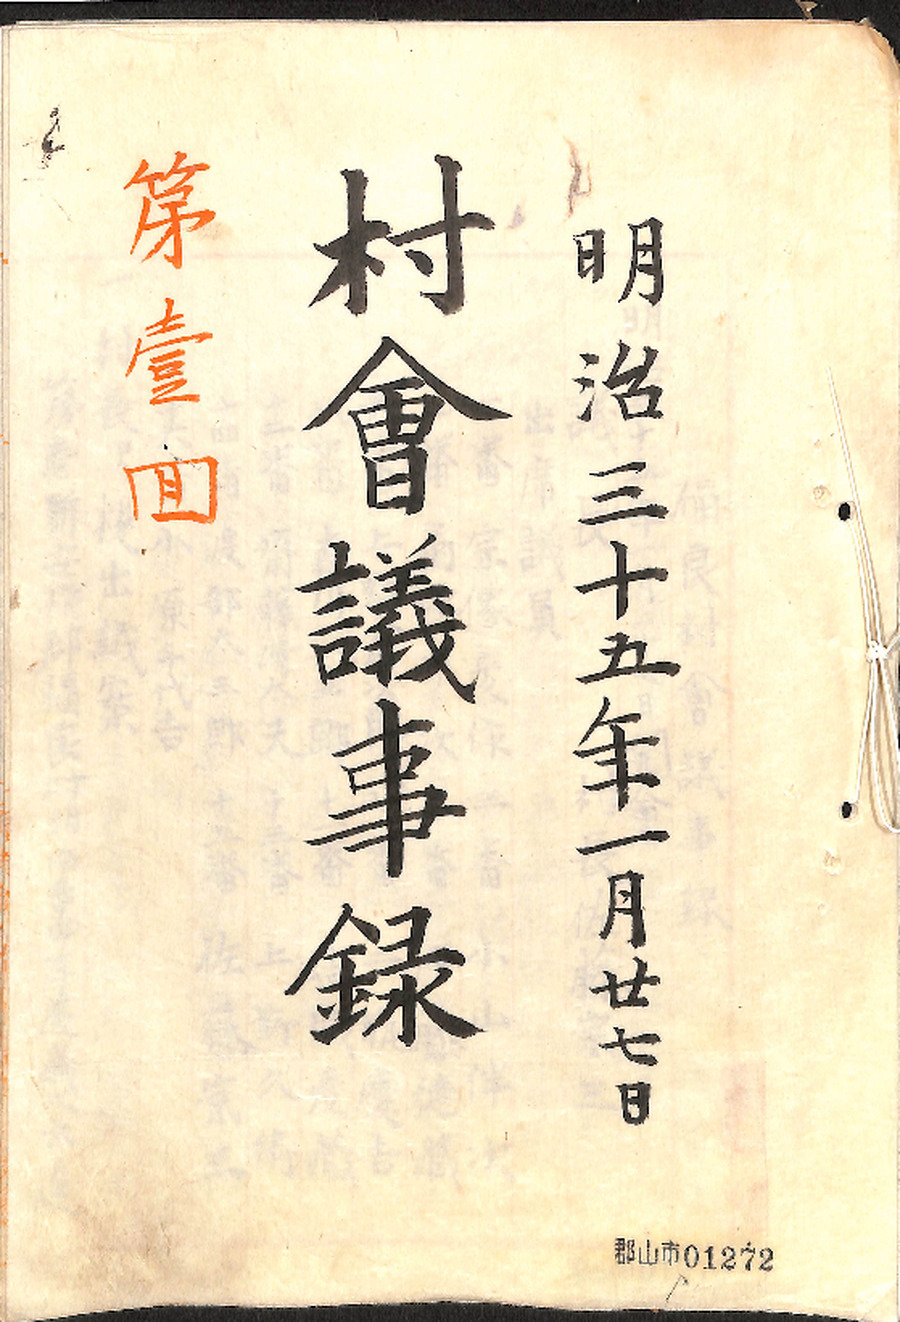 明治三十五年一月廿七日
村會議事録
第壹回
郡山市01272